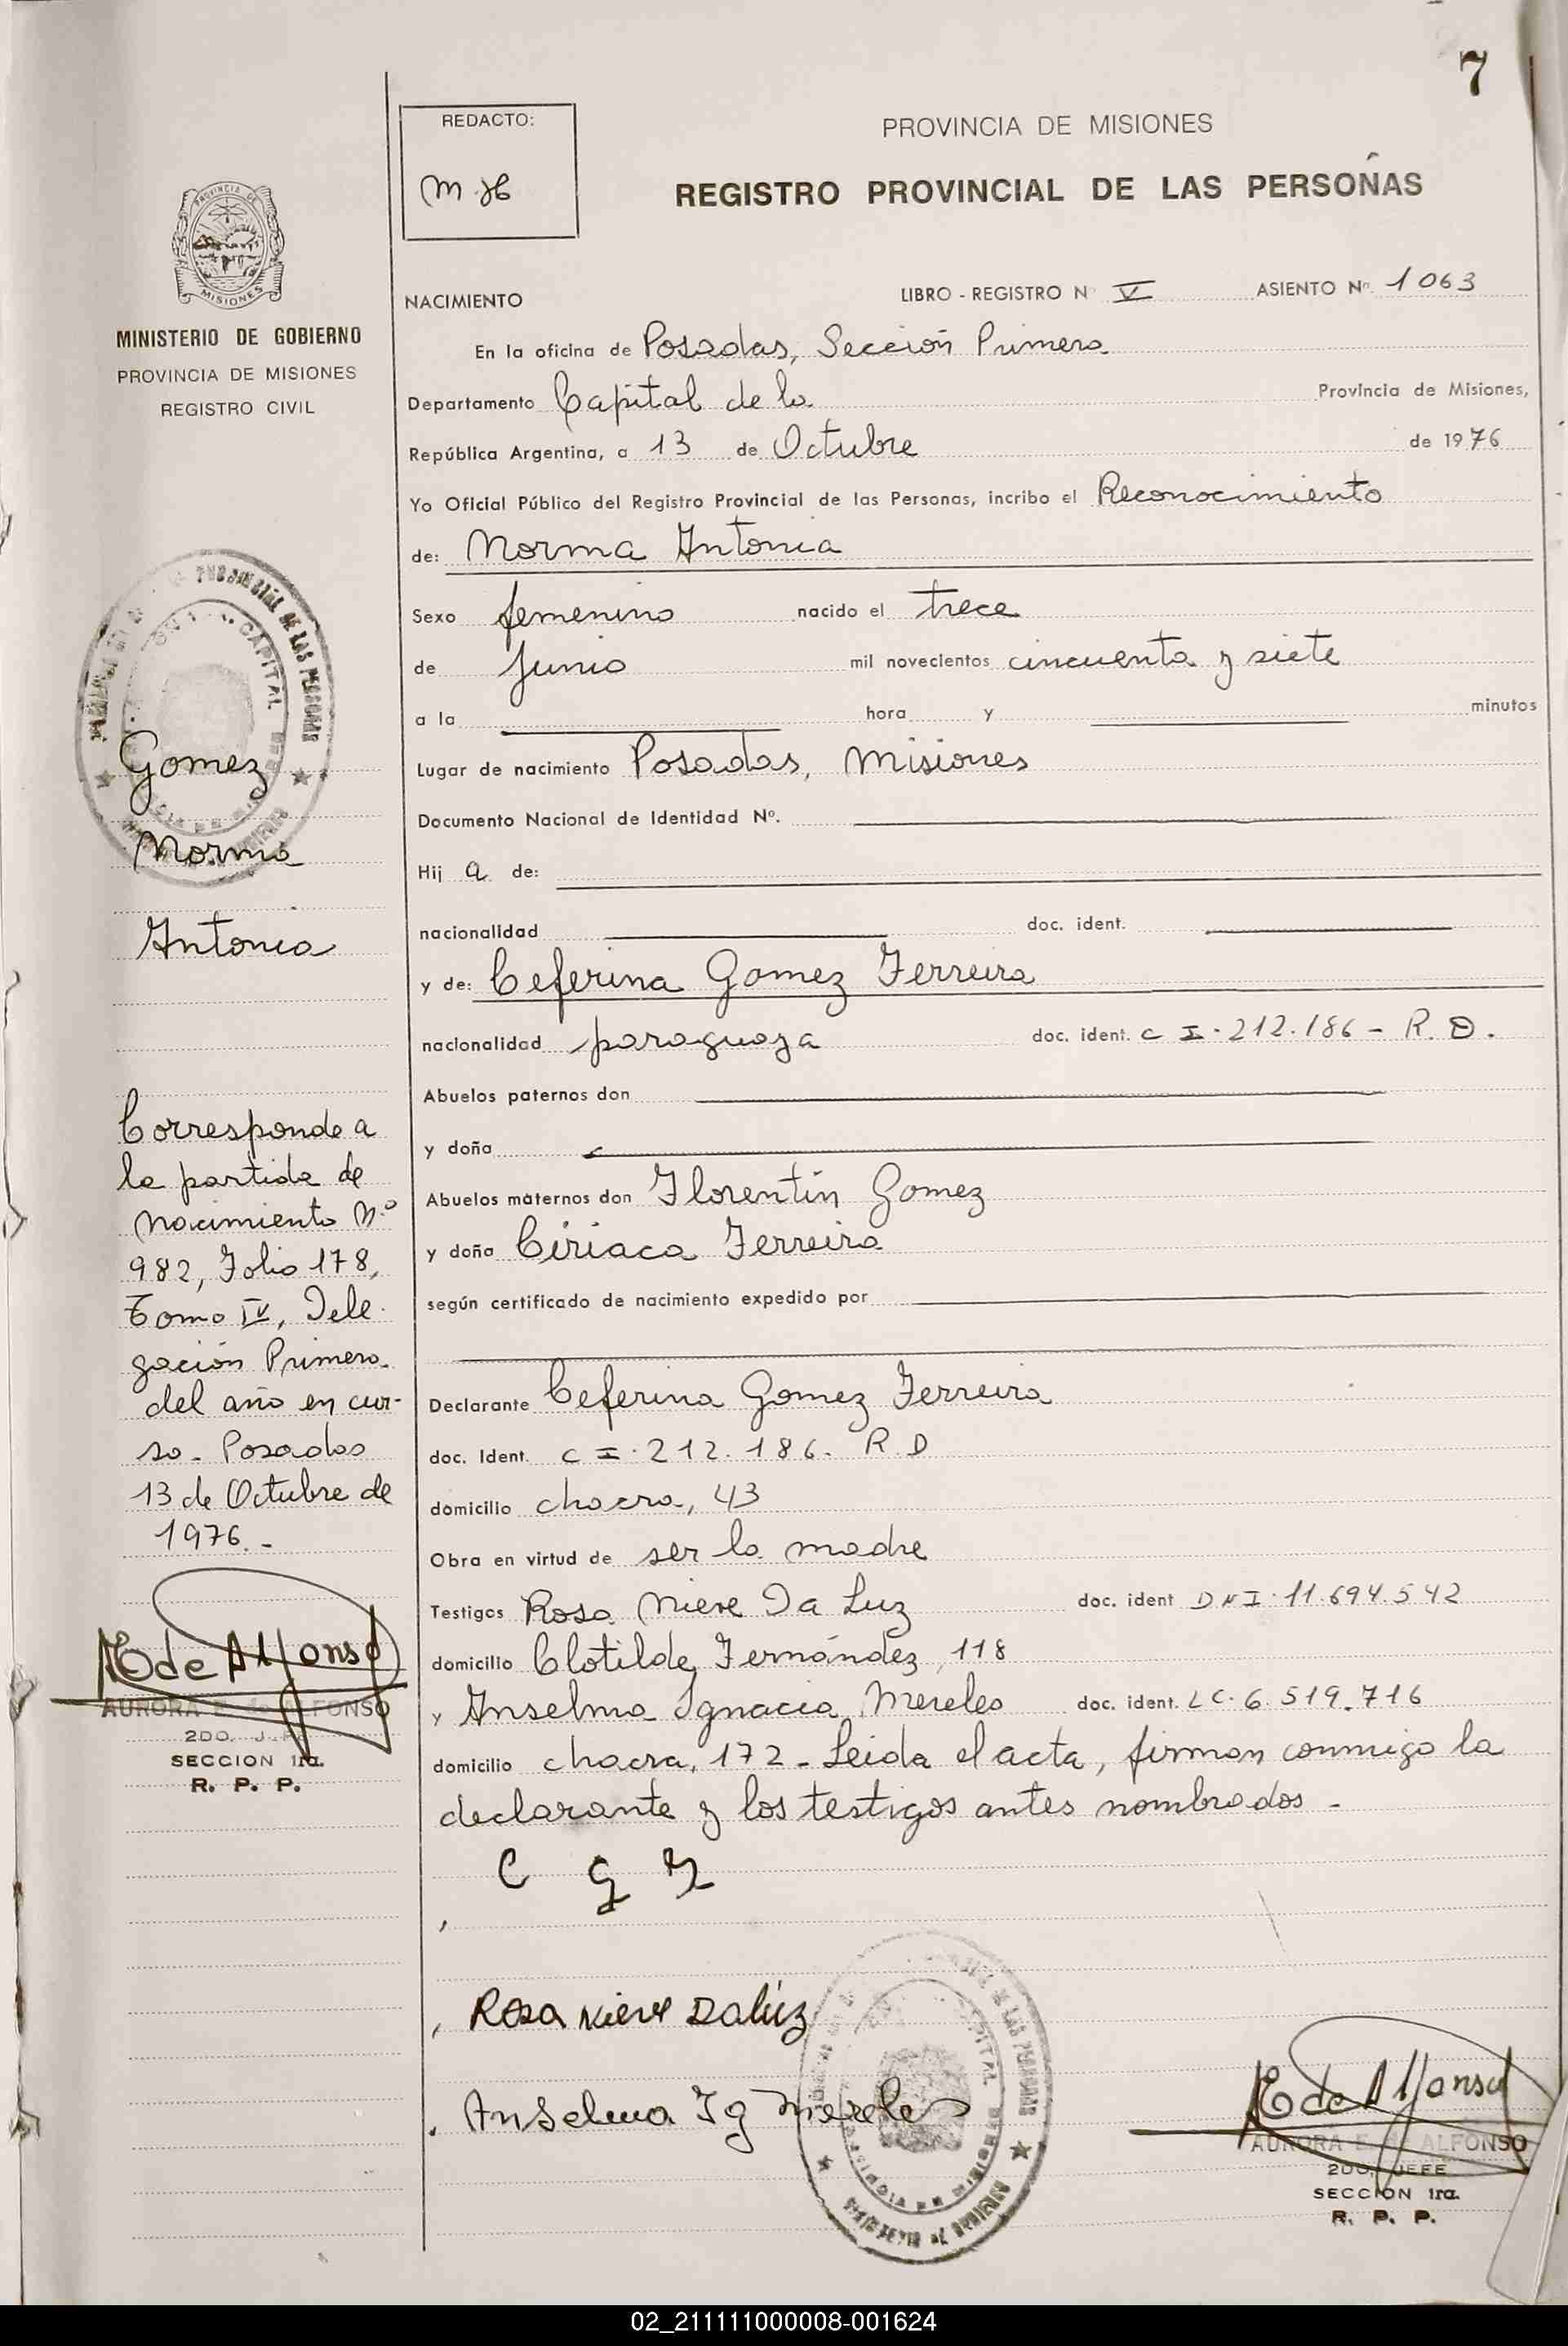 7
REDACTO:
PROVINCIA DE MISIONES
REGISTRO PROVINCIAL DE LAS PERSONAS
MISIONES
MINISTERIO DE GOBIERNO
PROVINCIA DE MISIONES
REGISTRO CIVIL
NACIMIENTO
LIBRO - REGISTRO Nº V ASIENTO Nº 1063
En la oficina de Posadas, Sección Primera
Departamento Capital de la Provincia de Misiones,
República Argentina, a 13 de Octubre de 1976
Yo Oficial Público del Registro Provincial de las Personas, incribo el Reconocimiento
de: Norma Antonia
Sexo femenino nacido el trece
de Junio mil novecientos cincuenta y siete
a la hora y minutos
Lugar de nacimiento Posadas, Misiones
Documento Nacional de Identidad Nº.
Hij a de:
nacionalidad doc. ident.
y de: Ceferina Gomez Ferreira
nacionalidad paraguaya doc. ident. C I. 212.186 - R. D.
Abuelos paternos don
y doña
Abuelos maternos don Florentín Gomez
y doña Ciriaca Ferreira
según certificado de nacimiento expedido por
Declarante Ceferina Gomez Ferreira
doc. Ident. C I. 212. 186. R. D
domicilio chacra, 43
Obra en virtud de ser la madre
Testigos Rosa Nieve Da Luz doc. ident DNI. 11.694.542
domicilio Clotilde Fernández, 118
y Anselma Ignacia Mereles doc. ident. LC. 6.519.716
domicilio chacra, 172 - Leida el acta, firman conmigo la
declarante y los testigos antes nombrados -
C G F
Rosa Nieve Daluz
Anselma Ig Mereles
Gomez
Norma
Antonia
Corresponde a
la partida de
nacimiento Nº
982, Folio 178,
Tomo IV, Dele
gación Primera
del año en cur-
so - Posadas
13 de Octubre de
1976. -
E de Alfonso
AURORA E. de ALFONSO
2DO. JEFE
SECCION 1ra.
R. P. P.
E de Alfonso
AURORA E. de ALFONSO
2DO. JEFE
SECCION 1ra.
R. P. P.
02_211111000008-001624